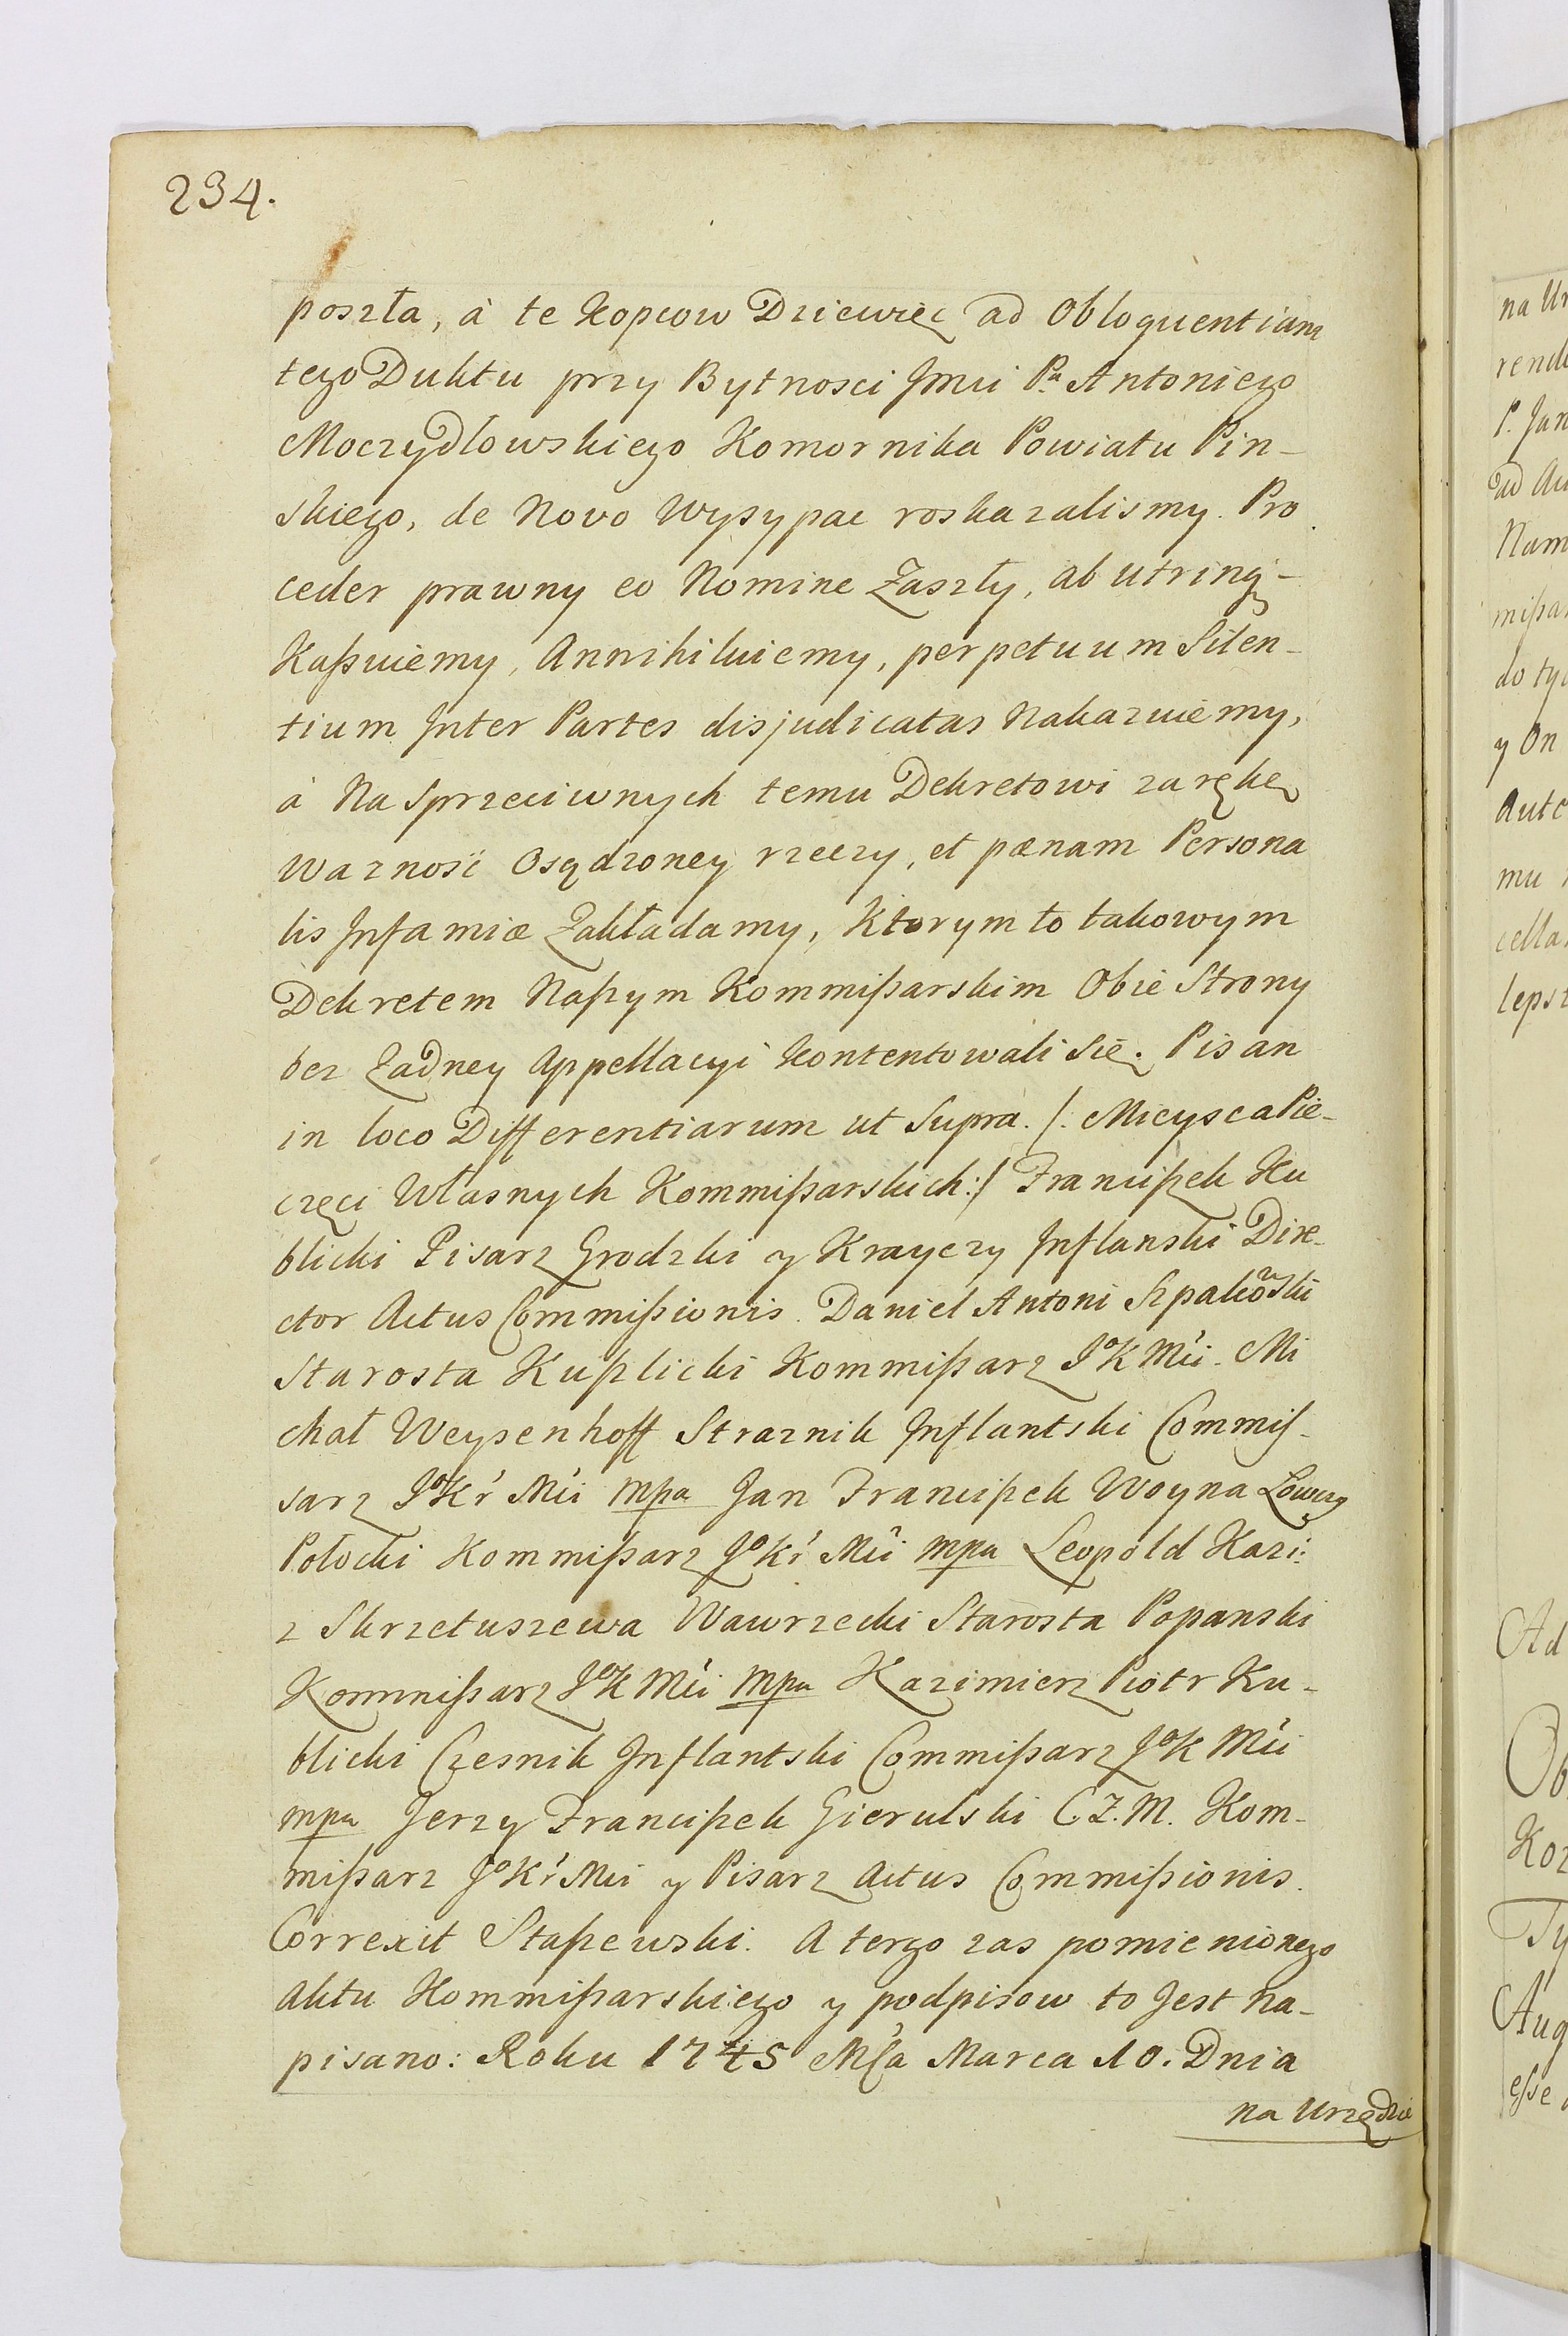 234.
poszła, à te kopcow Dziewięc ad Obloquentiam
tego Duktu przy Bytnosci Jmći Pa Antoniego
Moczydłowskiego Komornika Powiatu Pin-
skiego, de Novo Wysypac roskazalismy. Pro
ceder prawny eo Nomine Zaszły, ab utrinq-
Kaßuiemy, Annihiluiemy, perpetuum Silen-
tium Inter Partes disjudicatas Nakazuiemy,
à Na Sprzeciwnych temu Dekretowi zarękę
Waznośi Osądzoney rzeczy, et pœnam Persona
lis Infamiæ Zakładamy, Ktorym to takowym
Dekretem Naszym Kommißarskim Obie Strony
bez Zadney Appellacyi kontentowali Się. Pisan
in loco Differentiarum ut Supra. /: Mieysca Pie-
częci Własnych Kommißarskich:/ Franciszek Ku
blicki Pisarz Grodzki y Krayczy Inflanski Dire-
ctor Actus Commißionis. Daniel Antoni Szpakowski
Starosta Kuszlicki Kommißarz Jo K Mći. Mi
chał Weysenhoff Straznik Inflantski Commis-
sarz Jo Kr Mći mpa Jan Franciszek Woyna Łowczy
Połocki Kommißarz Jo Kr Mći mpa Leopold Kazi:
z Skrzetuszewa Wawrzecki Starosta Popanski
Kommißarz Jo K Mći mpa Kazimierz Piotr Ku-
blicki Czesnik Inflantski Commißarz Jo K Mći
mpa Jerzy Franciszek Gierulski C.Z.M. Kom-
mißarz Jo Kr Mći y Pisarz Actus Commißionis.
Correxit Staszewski. A tergo zas pomienionego
Aktu Kommißarskiego y podpisow to Jest na-
pisano: Roku 1745 Mca Marca 10. Dnia
na Urzędzie